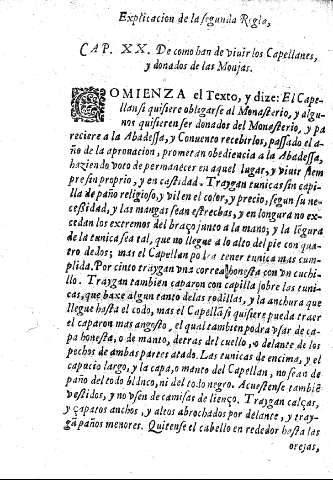 Explicacion de la segunda Regla,
CAP. XX. De como han de viuir los Capellanes,
y donados de las Monjas.
COMIENZA el Texto, y dize: El Cape-
llan si quisiere obligarse al Monasterio, y algu-
nos quisieren ser donados del Monasterio, y pa
reciere a la Abadessa, y Conuento recebirlos, passado el a-
ño de la aprouacion, prometan obediencia a la Abadessa,
haziendo voto de permanecer en aquel lugar, y viuir siem
pre sin proprio, y en castidad. Traygan tunicas sin capi-
lla de paño religioso, y vil en color, y precio, segun su ne-
cessidad, y las mangas sean estrechas, y en longura no ex-
cedan los extremos del braço junto a la mano; y la lõgura
de la tunica sea tal, que no llegue a lo alto del pie con qua-
tro dedos; mas el Capellan podra tener tunica mas cum-
plida. Por cinto traygan vna correa honesta con vn cuchi-
llo. Traygan tambien caparon con capilla sobre las tuni-
cas, que baxe algun tanto de las rodillas, y la anchura que
llegue hasta el codo, mas el Capellã si quisiere pueda traer
el caparon mas angosto, el qual tambien podra vsar de ca-
pa honesta, o de manto, detras del cuello, o delante de los
pechos de ambas partes atado. Las tunicas de encima, y el
capucio largo, y la capa, o manto del Capellan, no sean de
paño del todo blãco, ni del todo negro. Acuestense tambiẽ
vestidos, y no vsen de camisas de lienço. Traygan calças,
y çapatos anchos, y altos abrochados por delante, y tray-
gã paños menores. Quitense el cabello en rededor hasta las
orejas,